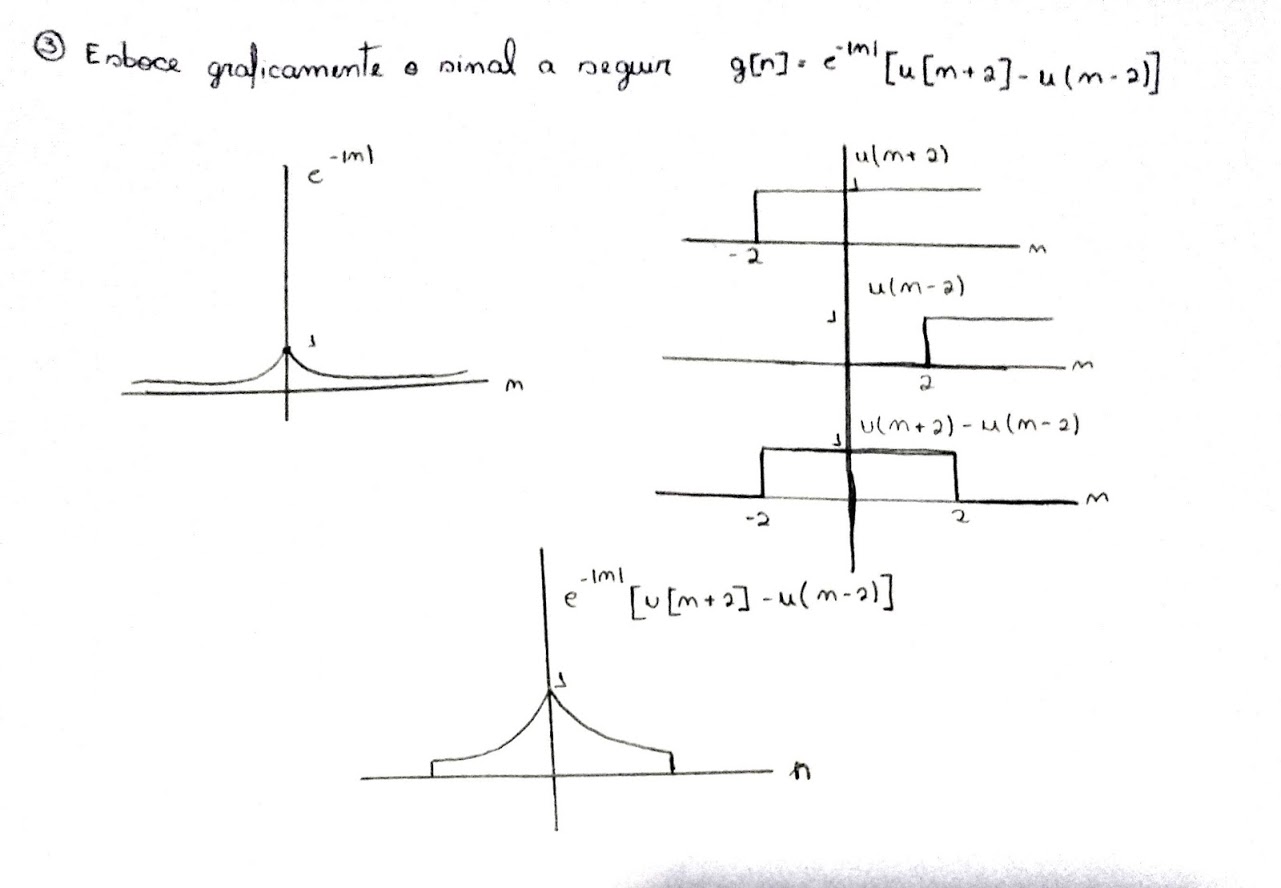 ③ Esboce graficamente o sinal a seguir g[n] = e^-|n| [u[n+2] - u(n-2)]
e^-|n|
1
n
u(n+2)
1
-2
n
u(n-2)
1
2
n
u(n+2) - u(n-2)
1
-2
2
n
e^-|n| [u[n+2] - u(n-2)]
1
n